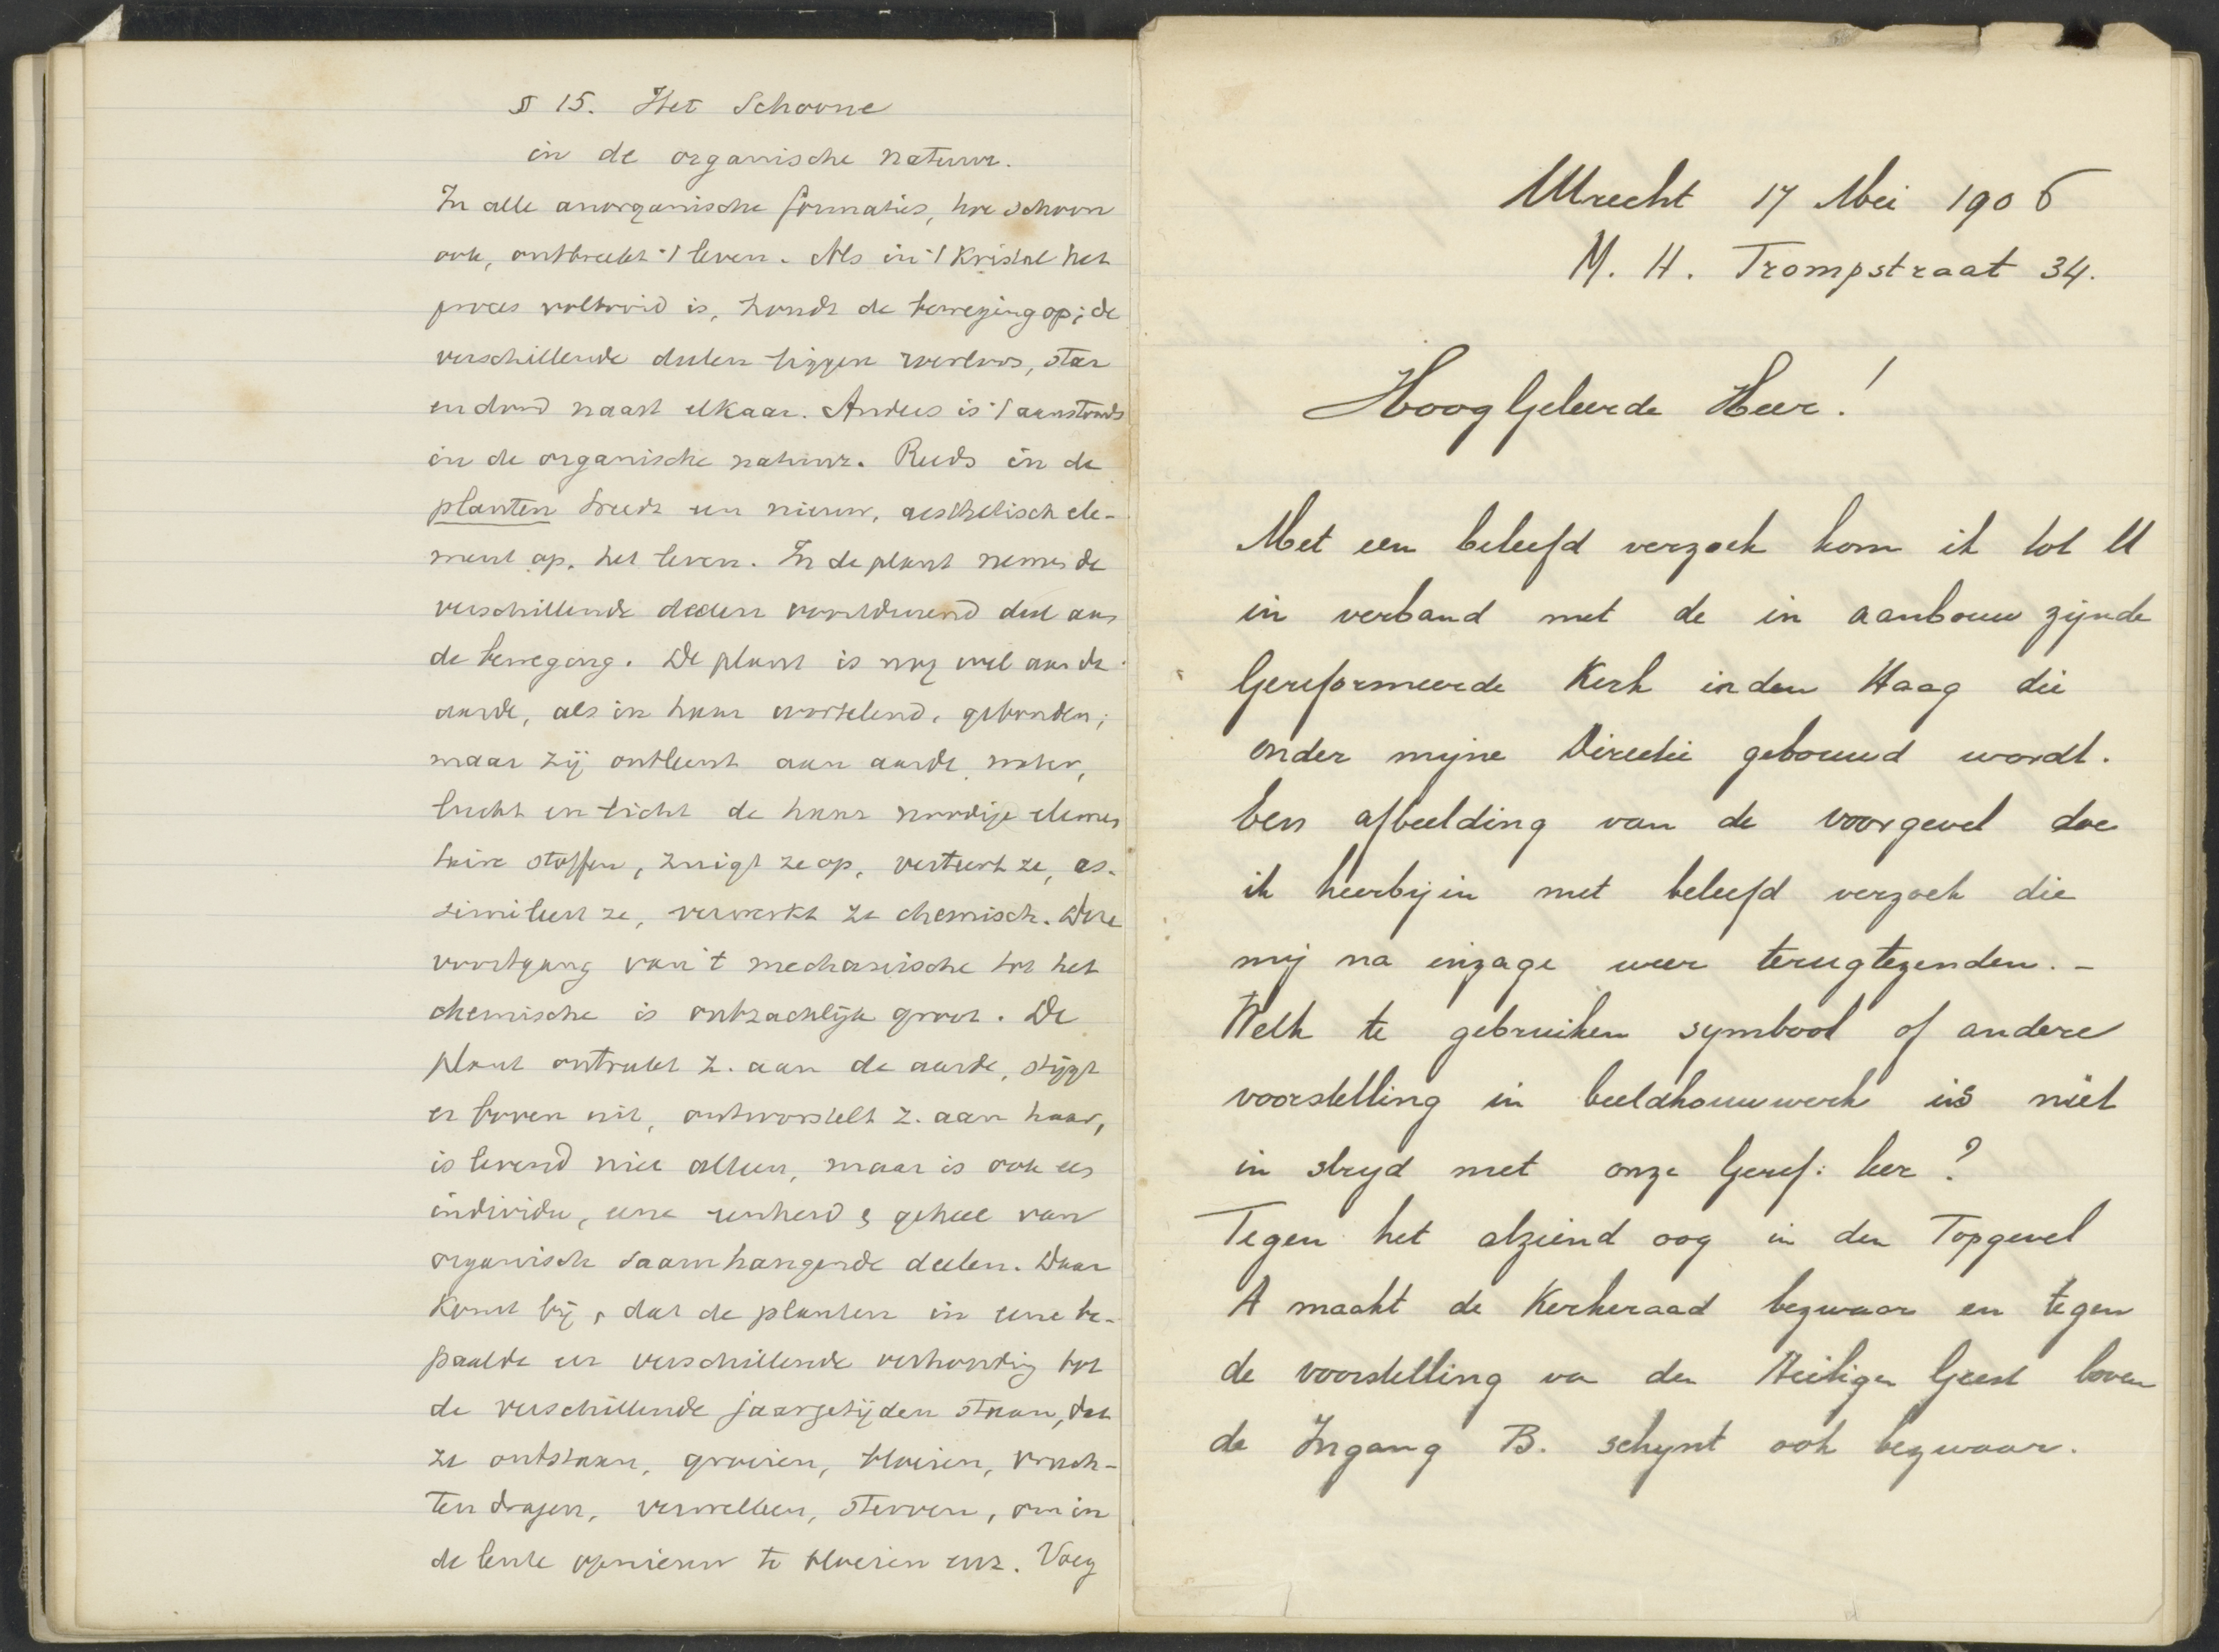 § 15. Het Schoone
in de organische natuur.
In alle anorganische formaties, hoe schoon
ook, ontbreekt 't leven. Als in 't Kristal het
proces voltooid is, houdt de beweging op; de
verschillende deelen liggen roerloos, star
en dood naast elkaar. Anders is 't aanstonds
in de organische natuur. Reeds in de
planten treedt een nieuw, aesthetisch ele-
ment op, het leven. In de plant nemen de
verschillende deelen voortdurend deel aan
de beweging. De plant is nog wel aan de
aarde, als in haar wortelend, gebonden;
maar zij ontleent aan aarde, water,
lucht en licht de haar noodige elemen
taire stoffen, zuigt ze op, verteert ze, as-
simileert ze, verwerkt ze chemisch. Deze
voortgang van 't mechanische tot het
chemische is ontzachlijk groot. De
plant ontrukt z. aan de aarde, stijgt
er boven uit, ontworstelt z. aan haar,
is levend niet alleen, maar is ook een
individu, eene eenheid & geheel van
organisch saamhangende deelen. Daar
Komt bij, dat de planten in eene be-
paalde en verschillende verhouding tot
de verschillende jaargetijden staan, dat
ze ontstaan, groeien, bloeien, vruch-
ten dragen, verwelken, sterven, om in
de lente opnieuw te bloeien enz. Voeg
Utrecht 17 Mei 1906
M. H. Trompstraat 34.
HoogGeleerde Heer!
Met een beleefd verzoek kom ik tot U
in verband met de in aanbouw zijnde
Gereformeerde Kerk in den Haag die
onder mijne Directie gebouwd wordt.
Een afbeelding van de voorgevel doe
ik heerbij in met beleefd verzoek die
mij na inzage weer terugtezenden. -
Welk te gebruiken symbool of andere
voorstelling in beeldhouwwerk is niet
in strijd met onze Geref: leer?
Tegen het alziend oog in den Topgevel
A maakt de Kerkeraad bezwaar en tegen
de voorstelling va den Heiligen Geest boven
de Ingang B. schijnt ook bezwaar.